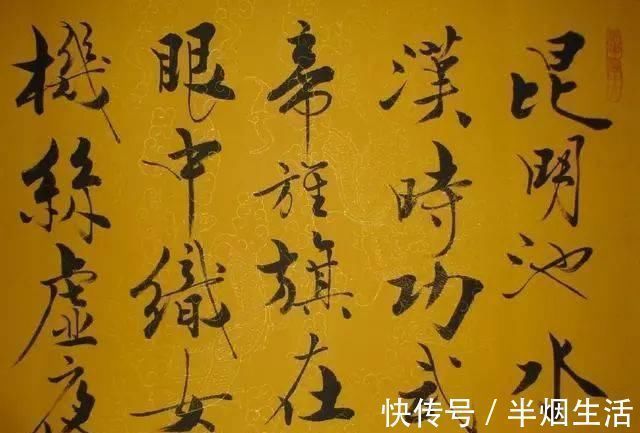 昆明池水
漢時功武
帝旌旗在
眼中織女
機絲虛夜
快传号 / 半烟生活